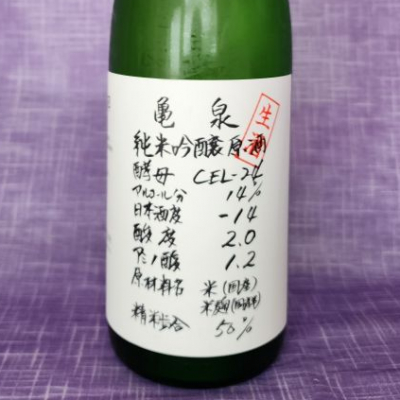 亀泉
生酒
純米吟醸原酒
酵母 CEL-24
アルコール分 14%
日本酒度 -14
酸度 2.0
アミノ酸 1.2
原材料名 米(国産)
米麹(国産米)
精米歩合 50%